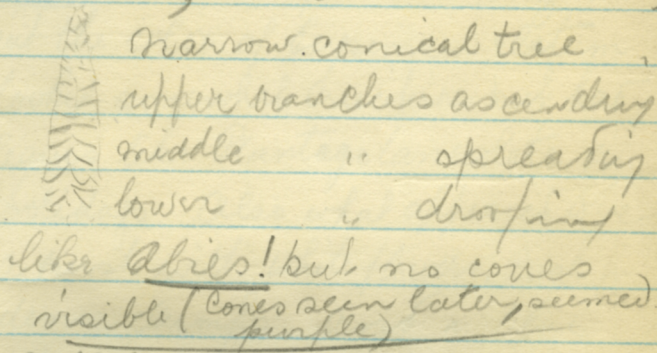 narrow. conical tree
upper branches ascending
middle " spreading
lower " drooping
like Abies! but no cones
visible (Cones seen later, seemed
purple)